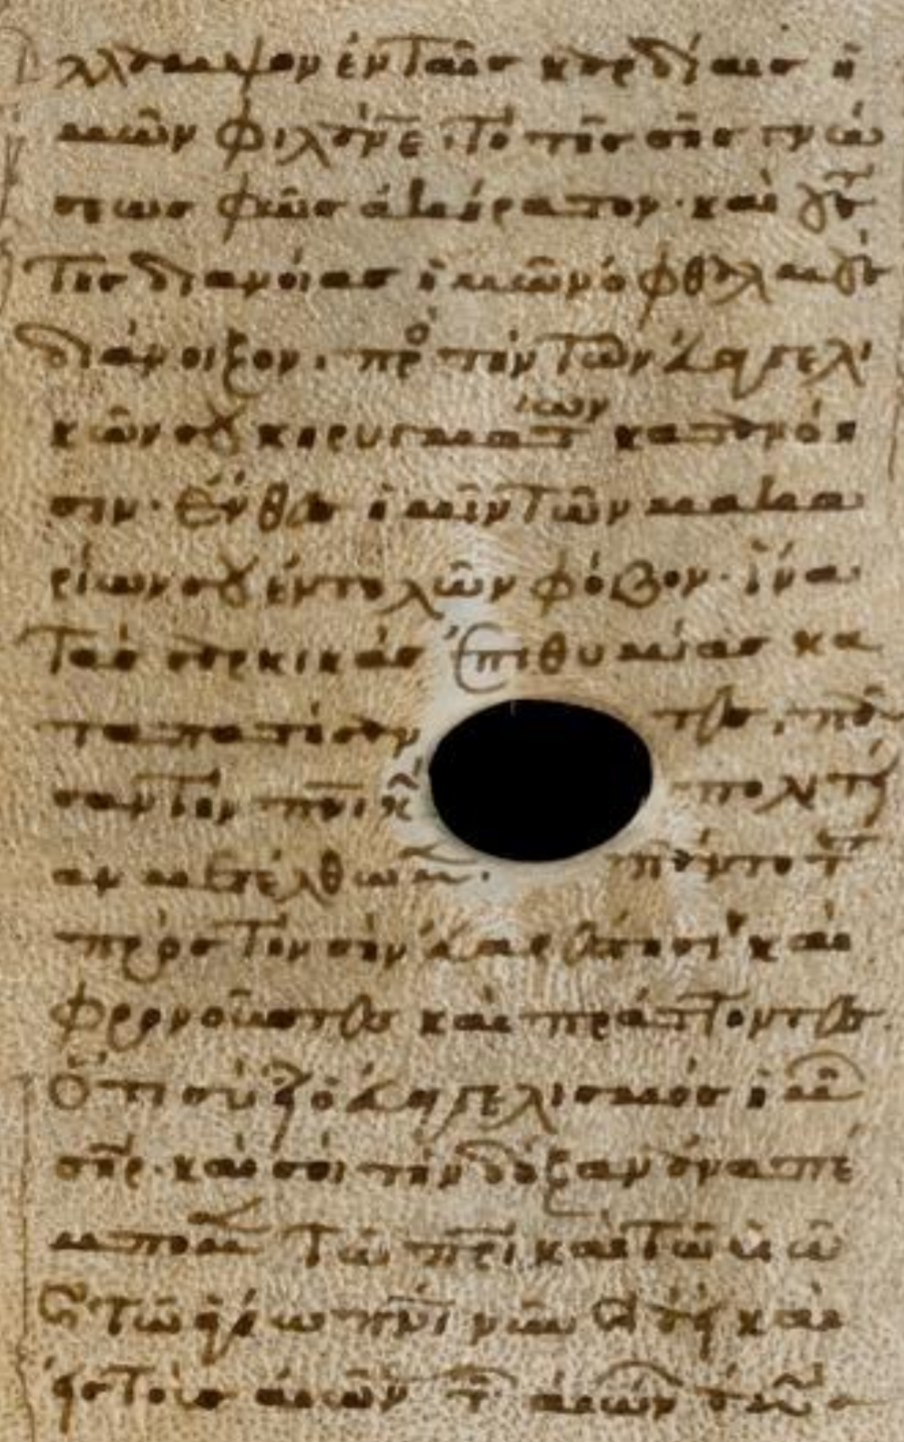 λλαμψον ἐν ταῖς καρδίαις ἡ
μῶν φιλάνε· τὸ τῆς σῆς γνώ
σεως φῶς ἀκήρατον· καὶ τοὺς
τῆς διανοίας ἡμῶν ὀφθαλμοὺς
διάνοιξον· πρὸ τὴν τῶν εὐαγγελι
κῶν σου κηρυγμάτων κατανόη
σιν· ἔνθες ἡμῖν τῶν μακα
ρίων σου ἐντολῶν φόβον· ἵνα
τὰς σαρκικὰς ἐπιθυμίας κα
ταπατήσαν τες, πᾶ
σαν πνικ πολιτεί
αν μετέλθωμεν· πάντα τ
πρὸς τὴν σὴν εὐαρέστησιν καὶ
φρονοῦντες καὶ πράττοντες
Ὅτι σὺ εἶ ὁ εὐαγγελισμὸς ἡμ
σηρ· καὶ σοὶ τὴν δόξαν ἀναπέ
μπομεν τῷ πρὶ καὶ τῷ υἱῷ
καὶ τῷ ἁγίω πνι νῦν καὶ ἀεὶ καὶ
εἰς τοὺς αἰῶν τ αἰών ἀμήν